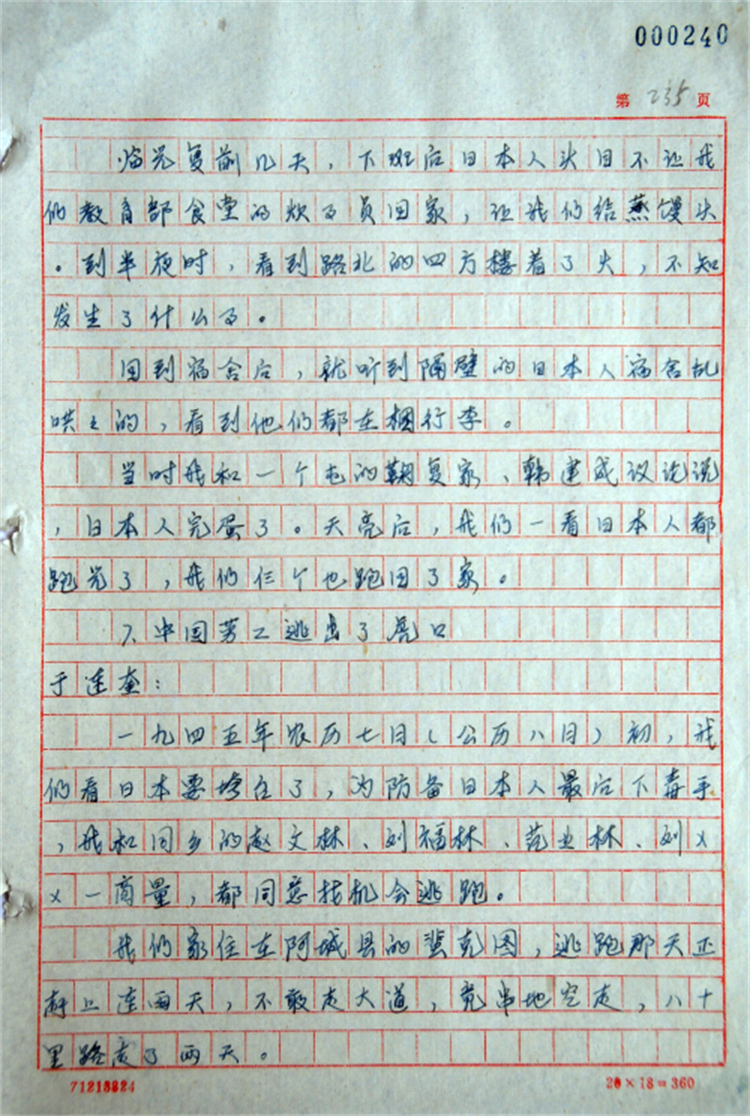 000240
第 235 页
临光复前几天，下班后日本人头目不让我
们教育部食堂的炊事员回家，让我们给蒸馒头
。到半夜时，看到路北的四方楼着了火，不知
发生了什么事。
回到宿舍后，就听到隔壁的日本人宿舍乱
哄々的，看到他们都在捆行李。
当时我和一个屯的靳复家、韩建成议论说
，日本人完蛋了。天亮后，我们一看日本人都
跑光了，我们仨个也跑回了家。
7、中国劳工逃出了虎口
于连奎：
一九四五年农历七月（公历八月）初，我
们看日本要垮台了，为防备日本人最后下毒手
，我和同乡的赵文林、刘福林、范业林、刘×
×一商量，都同意找机会逃跑。
我们家住在阿城县的蜚克图，逃跑那天正
赶上连雨天，不敢走大道，竟串地空走，八十
里路走了两天。
71213824
20×18=360